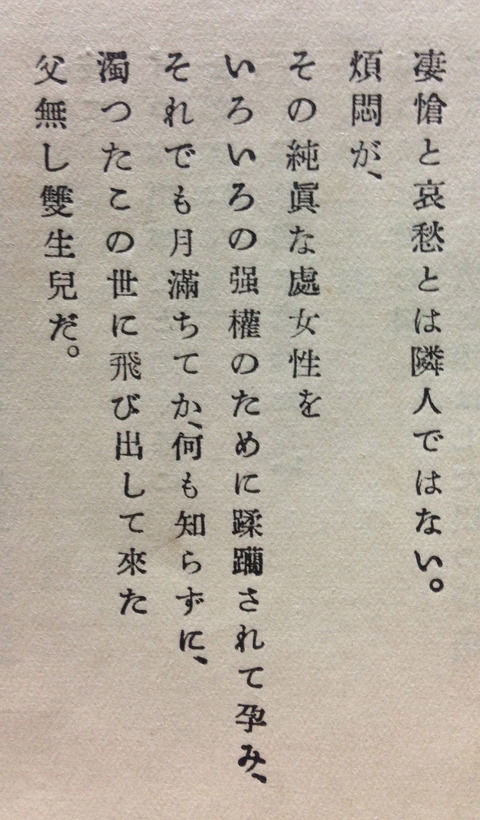 凄愴と哀愁とは隣人ではない。
煩悶が、
その純眞な處女性を
いろいろの强權のために蹂躙されて孕み、
それでも月滿ちてか、何も知らずに、
濁つたこの世に飛び出して來た
父無し雙生兒だ。